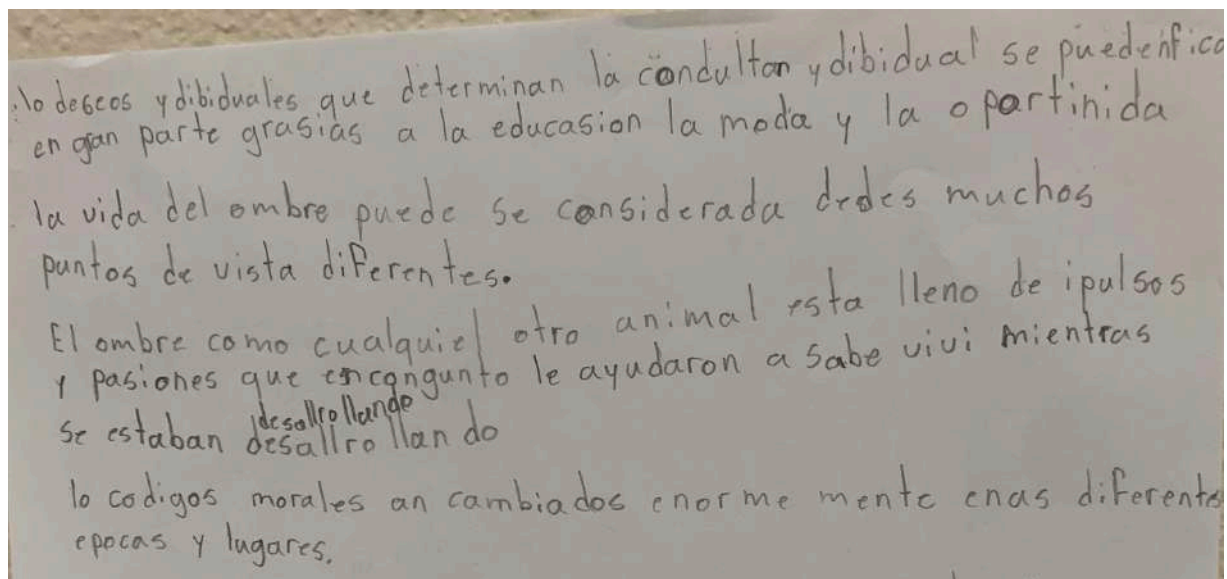 lo deseos ydibiduales que determinan la condultan ydibidual se puedenfica
en gran parte grasias a la educasion la moda y la opartinida
la vida del ombre puede se considerada dedes muchos
puntos de vista diferentes.
El ombre como cualquiel otro animal esta lleno de ipulsos
y pasiones que encongunto le ayudaron a sabe vivi mientras
desallrollando
se estaban desallrollando
lo codigos morales an cambiados enorme mente enas diferente
epocas y lugares.